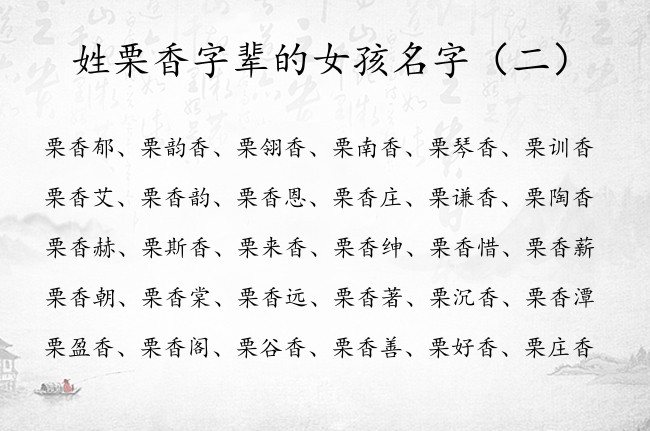 姓栗香字辈的女孩名字（二）
栗香郁、栗韵香、栗翎香、栗南香、栗琴香、栗训香
栗香艾、栗香韵、栗香恩、栗香庄、栗谦香、栗陶香
栗香赫、栗斯香、栗来香、栗香绅、栗香惜、栗香薪
栗香朝、栗香棠、栗香远、栗香著、栗沉香、栗香潭
栗盈香、栗香阁、栗谷香、栗香善、栗好香、栗庄香